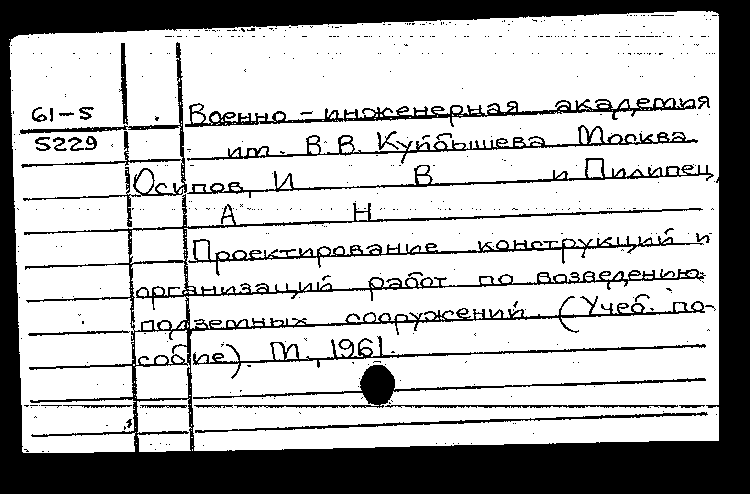 61-5 Военно-инженерная академия
5229 им. В.В. Куйбышева Москва
Осипов, И В и Пилипец,
А Н
Проектирование конструкций и
организаций работ по возведению
подземных сооружений. (Учеб. по-
собие). М., 1961.